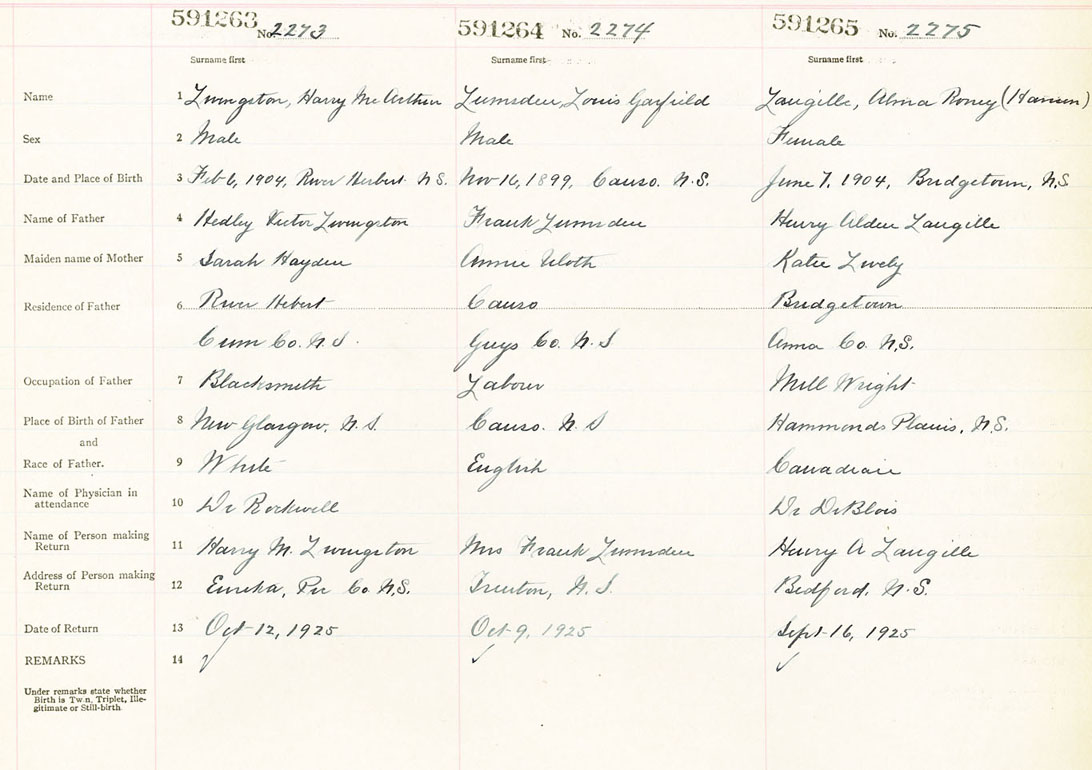 591263 No. 2273 591264 No. 2274 591265 No. 2275
Surname first Surname first Surname first
Name 1 Livingston, Harry McArthur Lumsden, Louis Garfield Langille, Alma Roney (Hanson)
Sex 2 Male Male Female
Date and Place of Birth 3 Feb 6, 1904, River Herbert N.S. Nov 16, 1899, Canso. N.S. June 7, 1904, Bridgetown, N.S
Name of Father 4 Hedley Victor Livingston Frank Lumsden Henry Alden Langille
Maiden name of Mother 5 Sarah Hayden Annie Uloth Katie Lively
Residence of Father 6 River Hebert Canso Bridgetown
Cum Co. N.S. Guys Co. N.S Anna Co N.S.
Occupation of Father 7 Blacksmith Labour Mill Wright
Place of Birth of Father 8 New Glasgow, N.S. Canso. N.S Hammonds Plains, N.S.
and
Race of Father. 9 White English Canadian
Name of Physician in
attendance 10 Dr Rockwell Dr DeBlois
Name of Person making
Return 11 Harry M. Livingston Mrs Frank Lumsden Henry A Langille
Address of Person making
Return 12 Eureka, Pic Co N.S. Trenton, N.S. Bedford, N.S.
Date of Return 13 Oct-12, 1925 Oct-9, 1925 Sept-16, 1925
REMARKS 14 ✓ ✓ ✓
Under remarks state whether
Birth is Twn, Triplet, Ille-
gitimate or Still-birth.